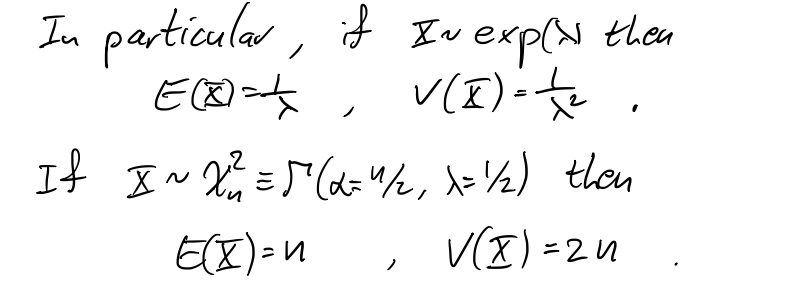 In particular, if X ~ exp(λ) then
E(X) = 1/λ , V(X) = 1/λ² .
If X ~ χ²ₙ ≡ Γ(α = n/2, λ = 1/2) then
E(X) = n , V(X) = 2n .